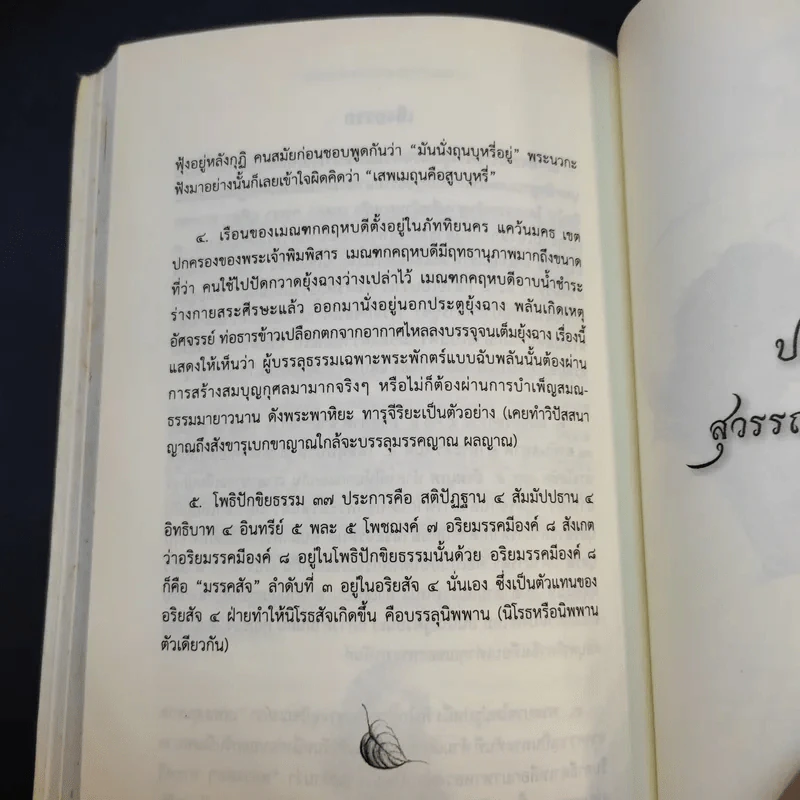 ฟุ้งอยู่หลังกุฏิ คนสมัยก่อนชอบพูดกันว่า “มันนั่งถุนบุหรี่อยู่” พระนวกะ
ฟังมาอย่างนั้นก็เลยเข้าใจผิดคิดว่า “เสพเมถุนคือสูบบุหรี่”
๔. เรือนของเมณฑกคฤหบดีตั้งอยู่ในภัททิยนคร แคว้นมคธ เขต
ปกครองของพระเจ้าพิมพิสาร เมณฑกคฤหบดีมีฤทธานุภาพมากถึงขนาด
ที่ว่า คนใช้ไปปัดกวาดยุ้งฉางว่างเปล่าไว้ เมณฑกคฤหบดีอาบน้ำชำระ
ร่างกายสระศีรษะแล้ว ออกมานั่งอยู่นอกประตูยุ้งฉาง พลันเกิดเหตุ
อัศจรรย์ ท่อธารข้าวเปลือกตกจากอากาศไหลลงบรรจุจนเต็มยุ้งฉาง เรื่องนี้
แสดงให้เห็นว่า ผู้บรรลุธรรมเฉพาะพระพักตร์แบบฉับพลันนั้นต้องผ่าน
การสร้างสมบุญกุศลมามากจริงๆ หรือไม่ก็ต้องผ่านการบำเพ็ญสมณ-
ธรรมมายาวนาน ดังพระพาหิยะ ทารุจีริยะเป็นตัวอย่าง (เคยทำวิปัสสนา
ญาณถึงสังขารุเบกขาญาณใกล้จะบรรลุมรรคญาณ ผลญาณ)
๕. โพธิปักขิยธรรม ๓๗ ประการคือ สติปัฏฐาน ๔ สัมมัปปธาน ๔
อิทธิบาท ๔ อินทรีย์ ๕ พละ ๕ โพชฌงค์ ๗ อริยมรรคมีองค์ ๘ สังเกต
ว่าอริยมรรคมีองค์ ๘ อยู่ในโพธิปักขิยธรรมนั้นด้วย อริยมรรคมีองค์ ๘
ก็คือ “มรรคสัจ” ลำดับที่ ๓ อยู่ในอริยสัจ ๔ นั่นเอง ซึ่งเป็นตัวแทนของ
อริยสัจ ๔ ฝ่ายทำให้นิโรธสัจเกิดขึ้น คือบรรลุนิพพาน (นิโรธหรือนิพพาน
ตัวเดียวกัน)
ป
สุวรรณ